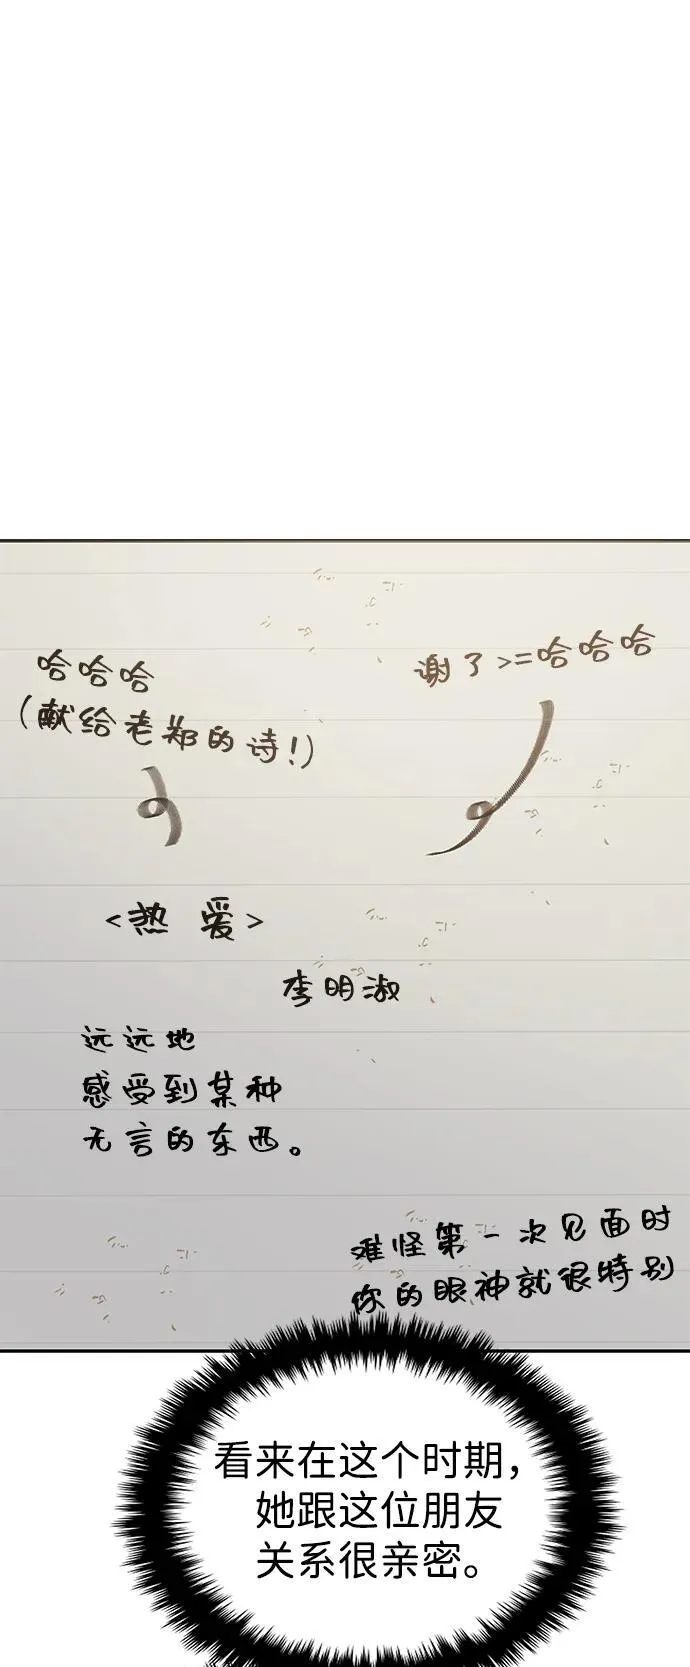 哈哈哈
(献给老郑的诗!)
谢了>=哈哈哈
<热 爱>
李明淑
远远地
感受到某种
无言的东西。
难怪第一次见面时
你的眼神就很特别
看来在这个时期，
她跟这位朋友
关系很亲密。